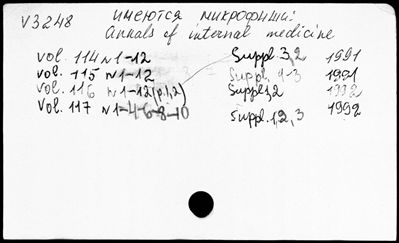 V3248 имеются микрофиши:
Annals of internal medicine
vol. 114 N1-12 Suppl. 3,2 1991
vol. 115 N1-12 Suppl. 1-3 1991
vol. 116 N1-12 (p.1,2) Suppl 1,2 1992
vol. 117 N1-4-6-8-10 Suppl. 1,2,3 1992